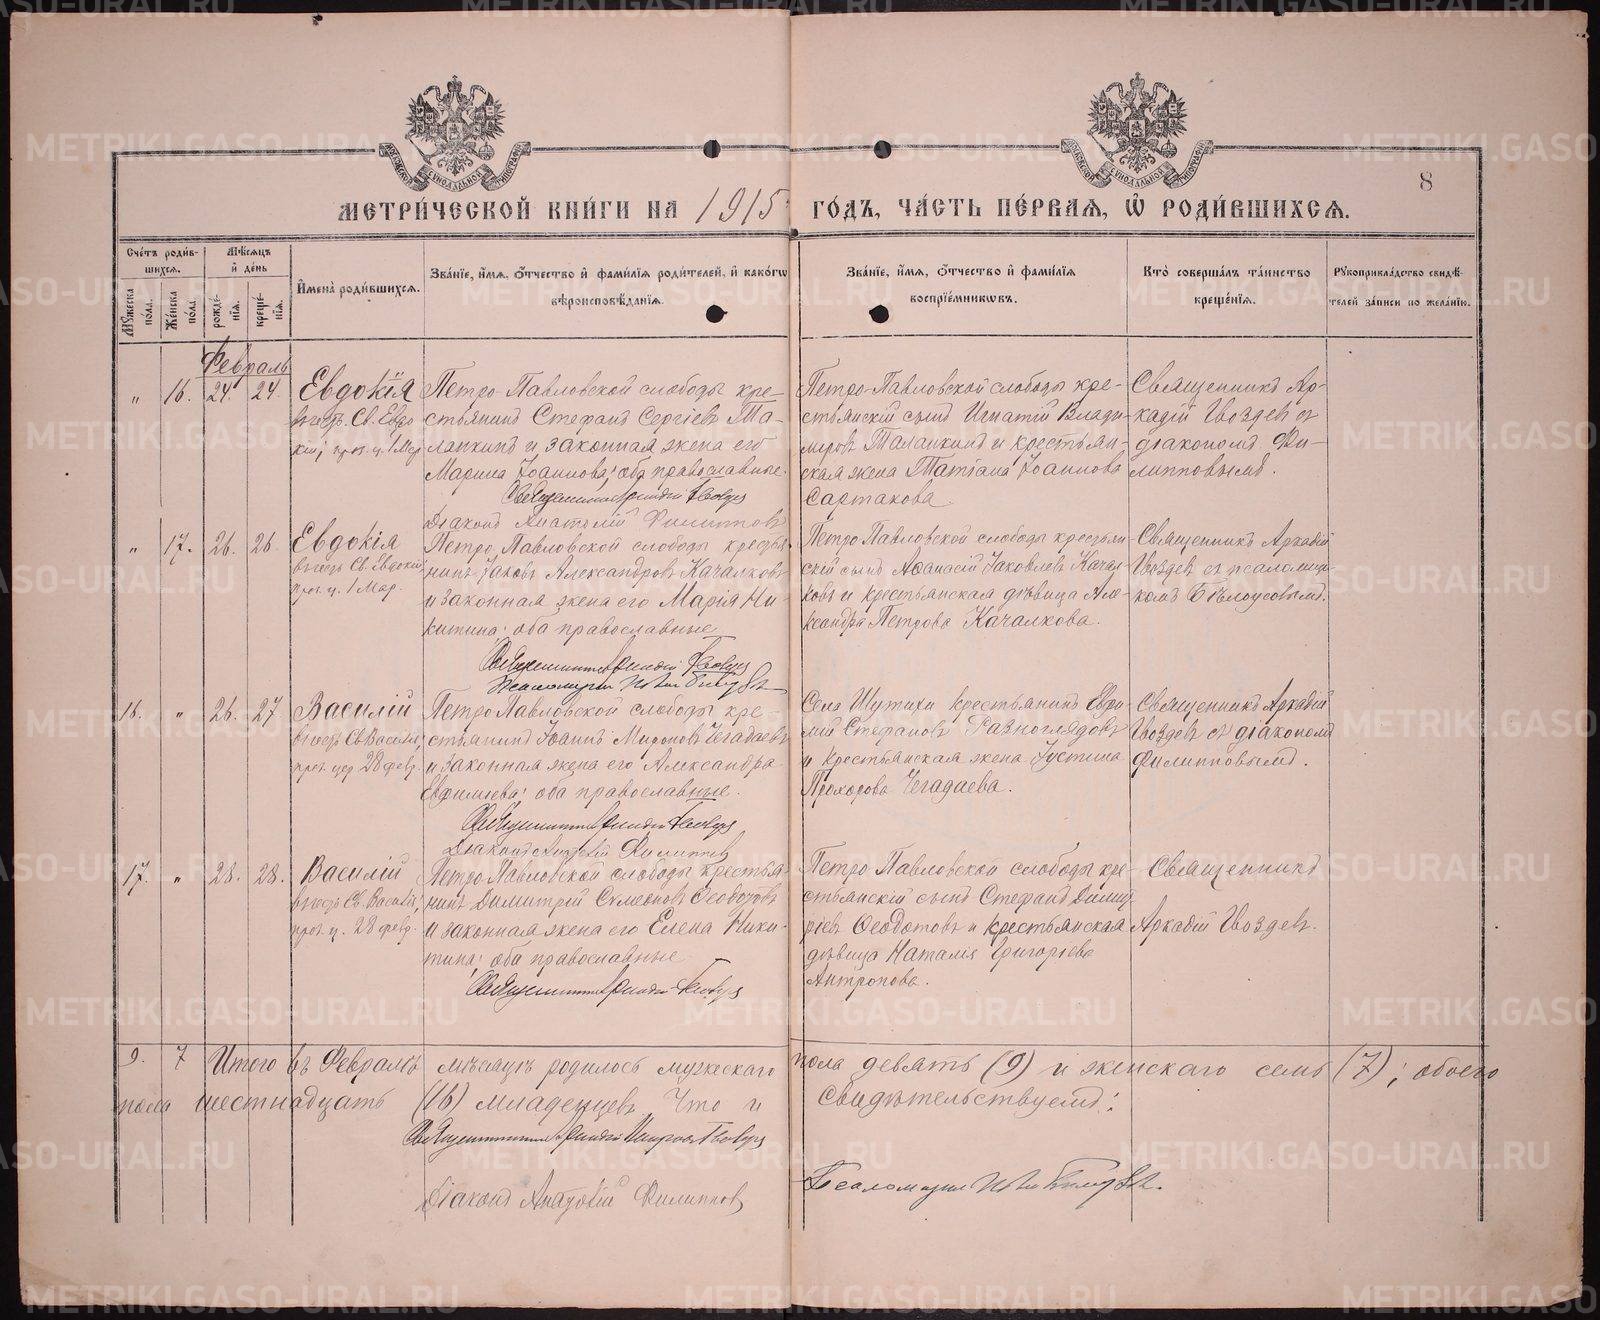 METRIKI.GASO-URAL.RU
8
МЕТРИ́ЧЕСКОЙ КНИ́ГИ НА 1915 ГО́ДЪ, ЧА́СТЬ ПЕ́РВАЯ, Ѡ РОДИ́ВШИХСЯ.
Сче́тъ роди́вшихся.
Мѣ́сяцъ и де́нь
Мꙋ́жеска по́ла.
Же́нска по́ла.
рожде́нія.
креще́нія.
Имена̀ роди́вшихся.
Зва́ніе, и́мя, о́тчество и фами́лія роди́телей, и како́гѡ
вѣроисповѣ́данія.
Зва́ніе, и́мя, о́тчество и фами́лія
воспріе́мникѡвъ.
Кто̀ соверша́лъ та́инство
креще́нія.
Рꙋкоприкла́дство свидѣ́-
телей за́писи по жела́нію.
Февраль
" 16. 24. 24. Евдокія
въ честь Св. Евдо
кіи; праз. ц. 1 Мар.
Петро-Павловской слободы кре-
стьянинъ Стефанъ Сергіевъ
и законная жена его
Марина Іоаннова; оба православные.
Священникъ Аркадій Гвоздев
Діаконъ Анатолій Филиппов
Петро-Павловской слободы кре-
стьянскій сынъ Игнатій Влади-
міровъ Таланкинъ и крестьян-
ская жена Татіана Іоаннова
Сартакова
Священникъ Ар-
кадій Гвоздев съ
діакономъ Фи-
липповымъ.
" 17. 26. 26. Евдокія
въ честь Св. Евдокіи,
праз. ц. 1 Мар.
Петро Павловской слободы крестья-
нинъ Іаковъ Александровъ Качалковъ
и законная жена его Марія Ни-
китина; оба православные
Священникъ Аркадій Гвоздев
Псаломщик
Петро Павловской слободы крестьян-
скій сынъ Афанасій Іаковлевъ Качал-
ковъ и крестьянская дѣвица Але-
ксандра Петрова Качалкова.
Священникъ Аркадій
Гвоздевъ съ псаломщи-
комъ Бѣлоусовымъ.
16. " 26. 27. Василій
въ честь Св. Василія,
праз. цер. 28 февр.
Петро Павловской слободы кре-
стьянинъ Іоаннъ Мироновъ Чегадаевъ
и законная жена его Александра
Евфиміева; оба православные.
Священникъ Аркадій Гвоздев
Діаконъ Анатолій Филиппов
Села Шутихи крестьянинъ
Стефановъ Разноглядовъ
и крестьянская жена Іустина
Прохорова Чегадаева.
Священникъ Аркадій
Гвоздевъ съ діакономъ
Филипповымъ.
17. " 28. 28. Василій
въ честь Св. Василія,
праз. ц. 28 февр.
Петро Павловской слободы крестья-
нинъ Димитрій Сѵмеоновъ Ѳеодотовъ
и законная жена его Елена Ники-
тина; оба православные
Священникъ Аркадій Гвоздев
Петро Павловской слободы кре-
стьянскій сынъ Стефанъ Димит-
ріевъ Ѳеодотовъ и крестьянская
дѣвица Наталія Григоріева
Антропова.
Священникъ
Аркадій Гвоздев.
9. 7 Итого въ Февралѣ мѣсяцѣ родилось мужескаго пола девять (9) и женскаго семь (7); обоего
пола шестнадцать (16) младенцевъ. Что и свидѣтельствуемъ:
Священникъ Аркадій Гвоздев
Діаконъ Анатолій Филиппов
Псаломщик